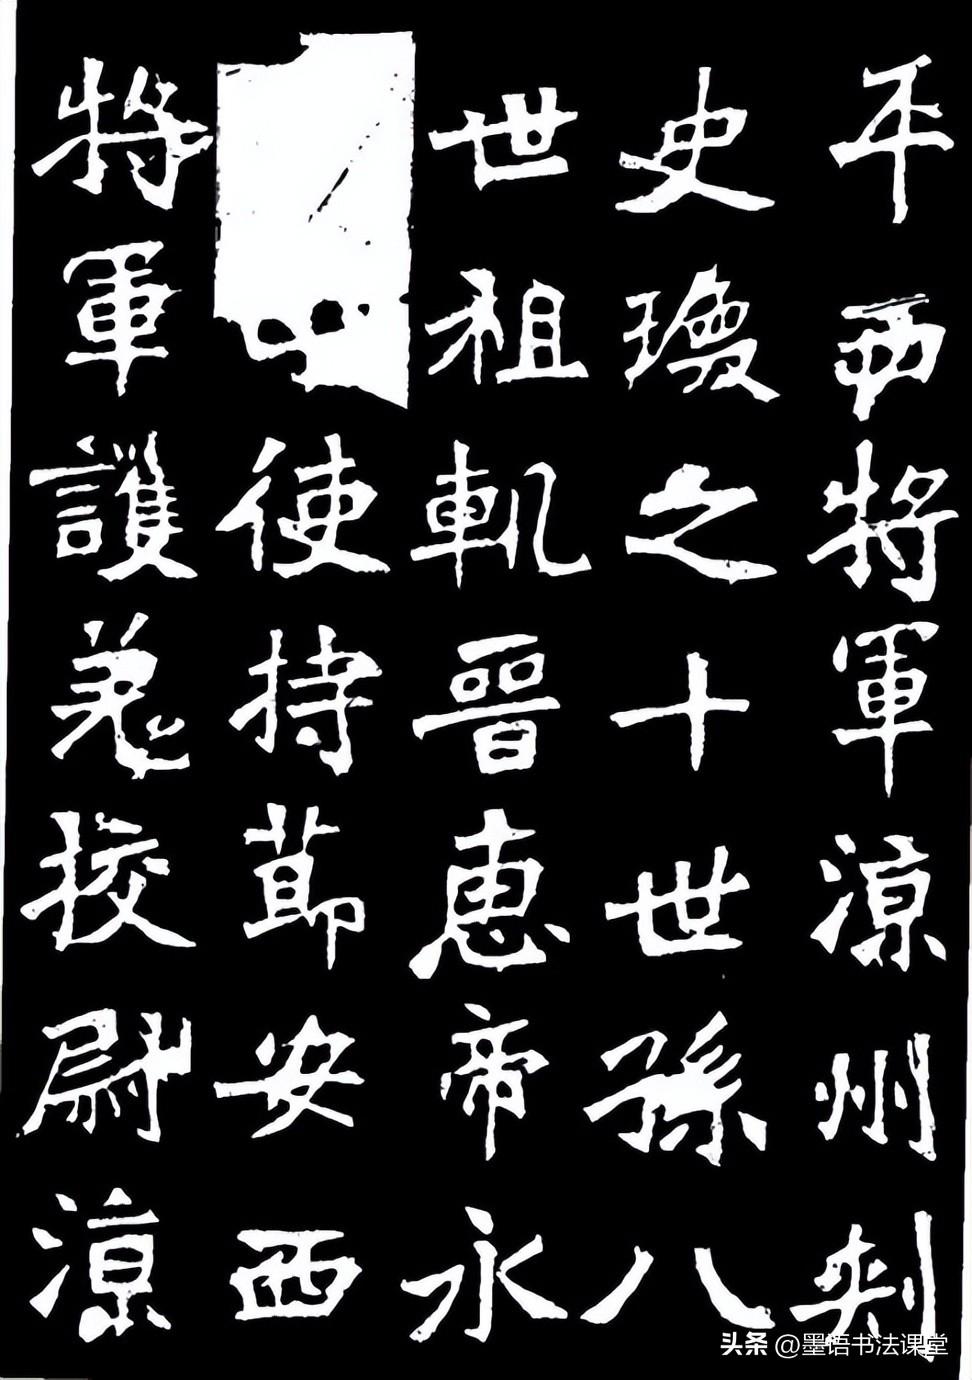 平西將軍涼州刺
史瓊之十世孫八
世祖軌晉惠帝永
使持節安西
將軍護羌校尉涼
头条 @墨语书法课堂